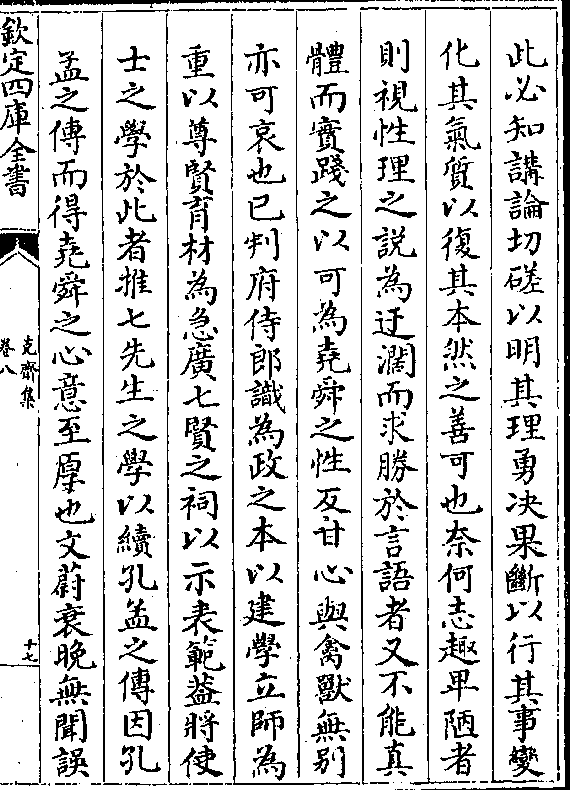 此必知講論切磋以明其理勇决果斷以行其事變
化其氣質以復其本然之善可也奈何志趣卑陋者
則視性理之説為迂濶而求勝於言語者又不能真
體而實踐之以可為堯舜之性反甘心與禽獸無别
亦可哀也已判府侍郎識為政之本以建學立師為
重以尊賢育材為急廣七賢之祠以示表範葢將使
士之學於此者推七先生之學以續孔孟之傳因孔
孟之傳而得堯舜之心意至厚也文蔚衰晚無聞誤
欽定四庫全書
克齋集
卷八
十七